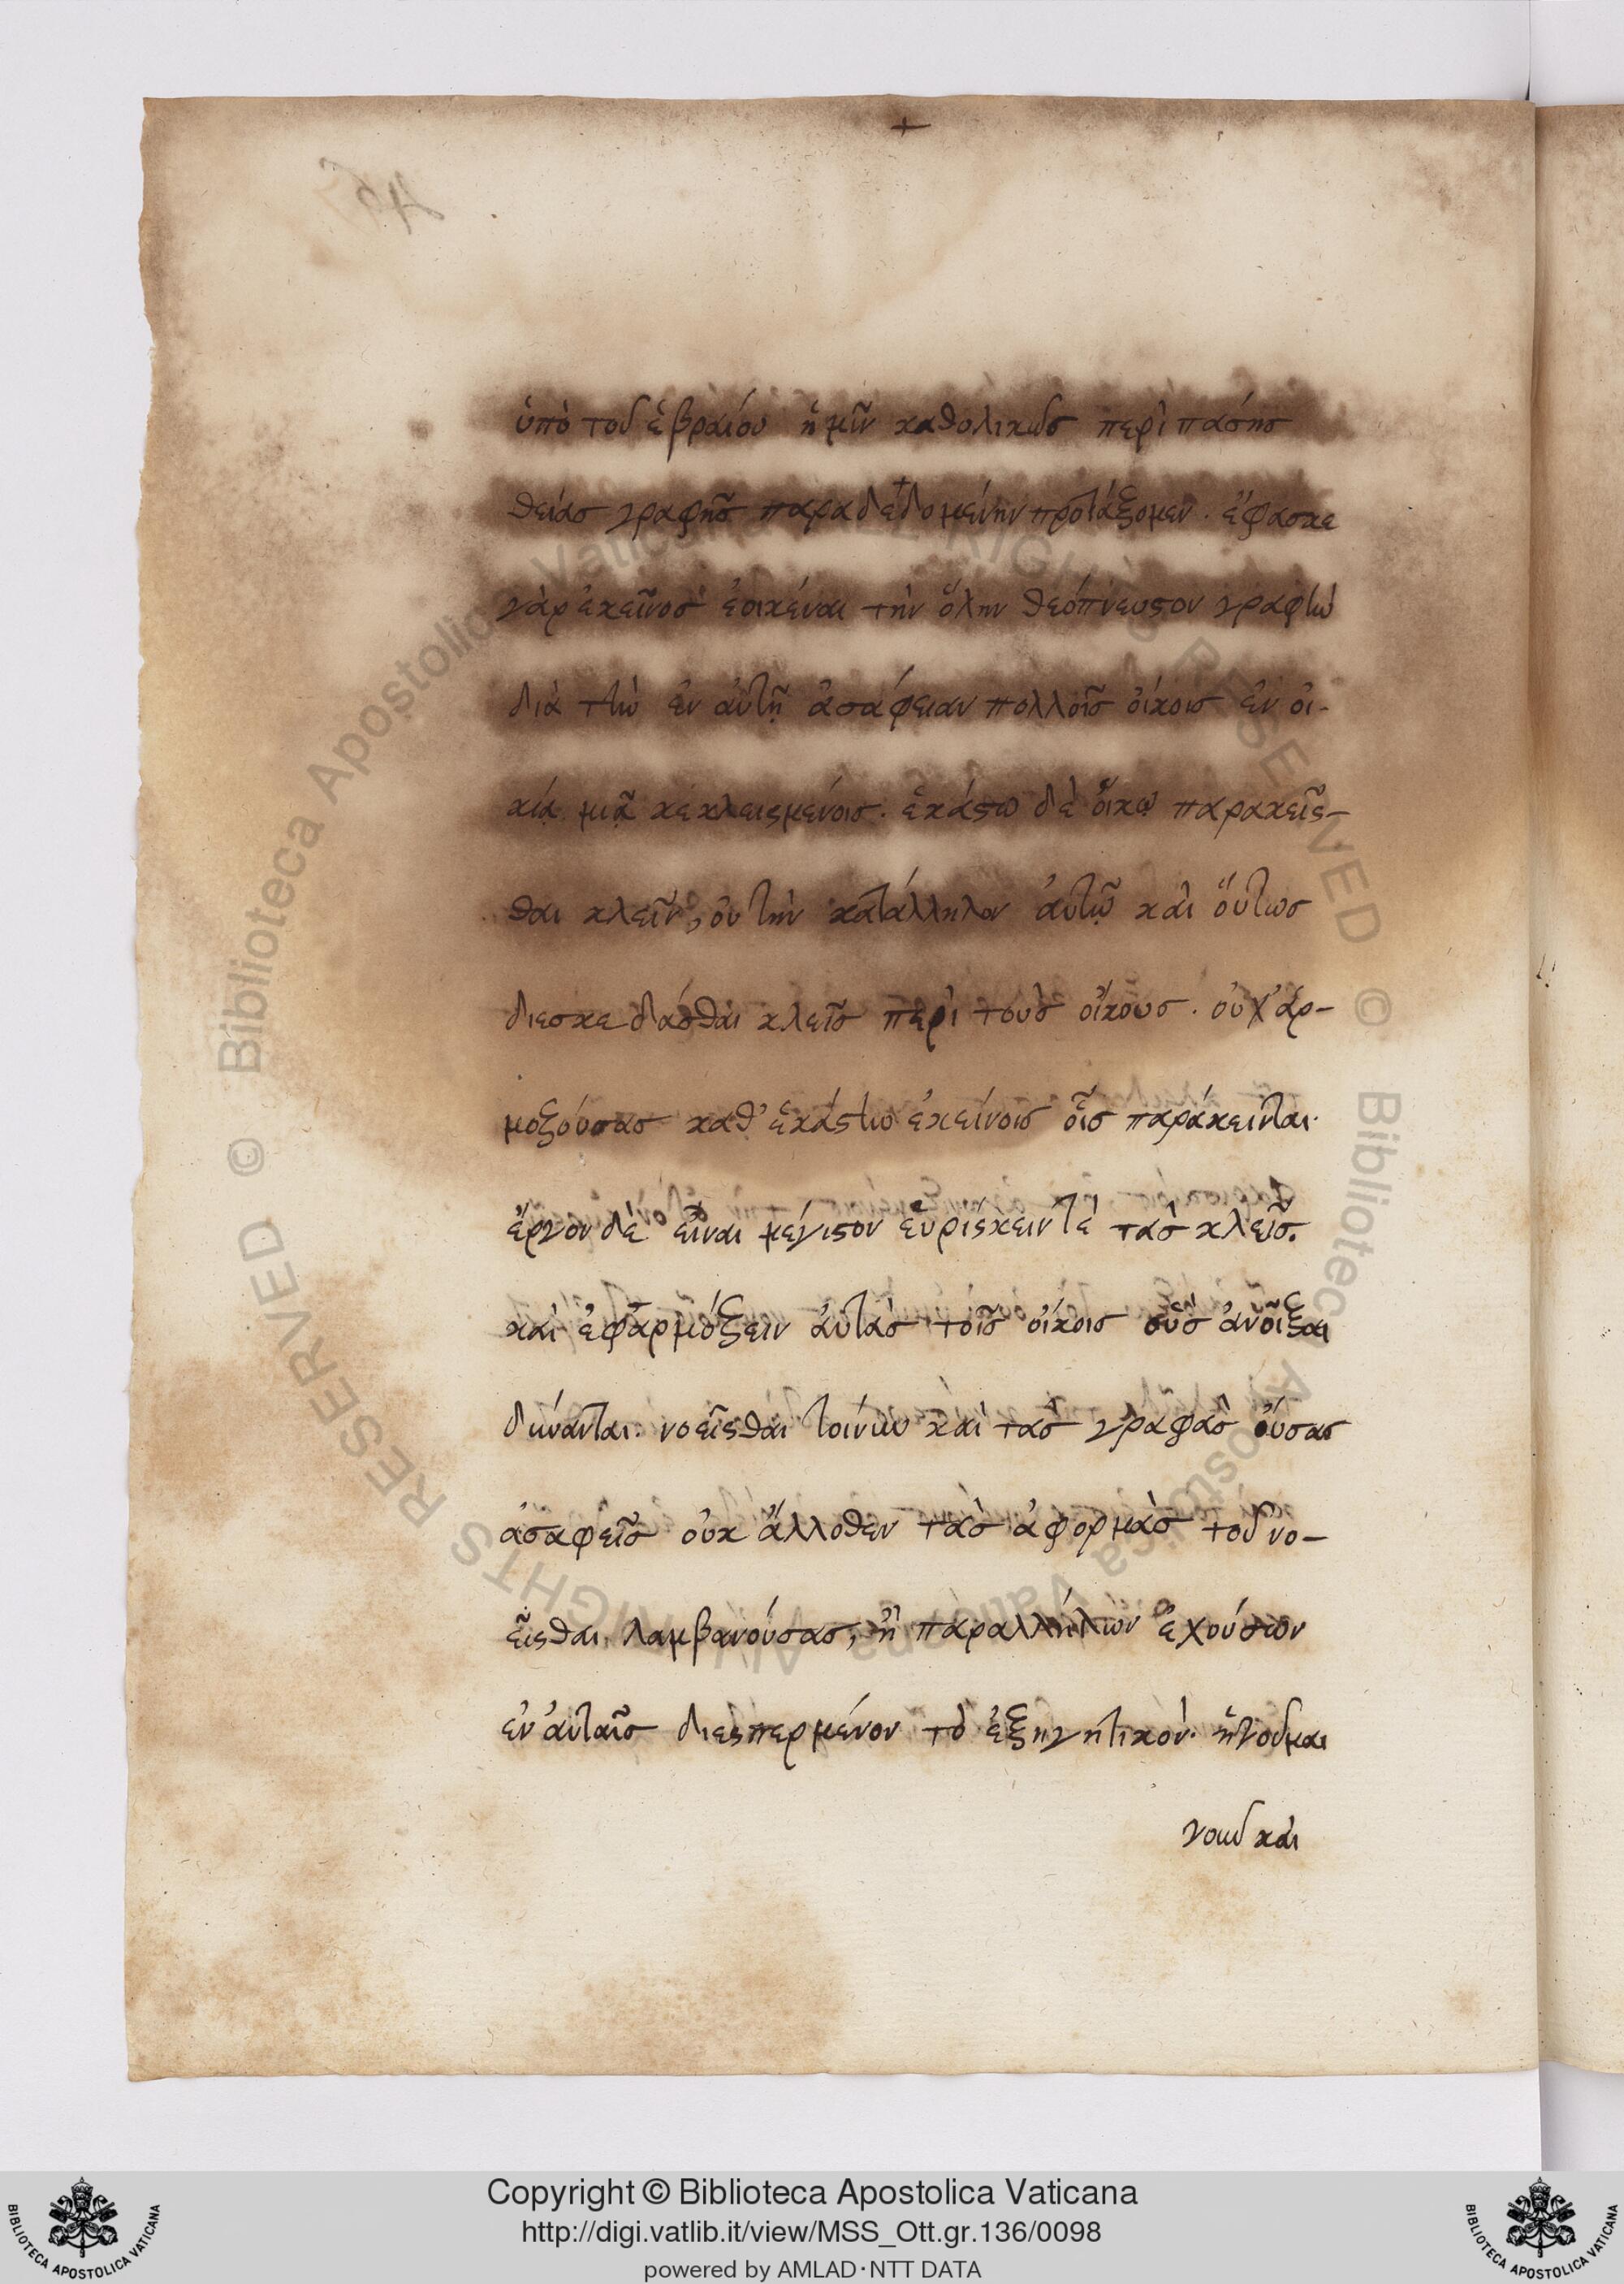 +
ὑπὸ τοῦ ἑβραίου ἡμῖν καθολικῶς περὶ πάσης
θείας γραφῆς παραδεδομένην προτάξομεν. ἔφασκε
γὰρ ἐκεῖνος ἐοικέναι τὴν ὅλην θεόπνευστον γραφὴν
διὰ τὴν ἐν αὐτῇ ἀσάφειαν πολλοῖς οἴκοις ἐν οἰ-
κίᾳ μιᾷ κεκλεισμένοις. ἑκάστω δὲ οἴκῳ παρακεῖσ-
θαι κλεῖν, οὐ τὴν κατάλληλον αὐτῷ καὶ οὕτως
διεσκεδάσθαι κλεῖς περὶ τοὺς οἴκους. οὐχ ἁρ-
μοζούσας καθ' ἑκάστην ἐκείνοις οἷς παράκεινται.
ἔργον δὲ εἶναι μέγιστον εὑρίσκειν τὲ τὰς κλεῖς.
καὶ ἐφαρμόζειν αὐτὰς τοῖς οἴκοις οὓς ἀνοῖξαι
δύνανται. νοεῖσθαι τοίνυν καὶ τὰς γραφὰς οὔσας
ἀσαφεῖς οὐκ ἄλλοθεν τὰς ἀφορμὰς τοῦ νο-
εῖσθαι λαμβανούσας, ἢ παραλλήλων ἐχούσων
ἐν αὐταῖς διεσπερμένον τὸ ἐξηγητικόν. ἡγοῦμαι
γοῦν καὶ
Copyright © Biblioteca Apostolica Vaticana
http://digi.vatlib.it/view/MSS_Ott.gr.136/0098
powered by AMLAD·NTT DATA
BIBLIOTECA APOSTOLICA VATICANA
BIBLIOTECA APOSTOLICA VATICANA
© Biblioteca Apostolica Vaticana ALL RIGHTS RESERVED © Biblioteca Apostolica Vaticana ALL RIGHTS RESERVED